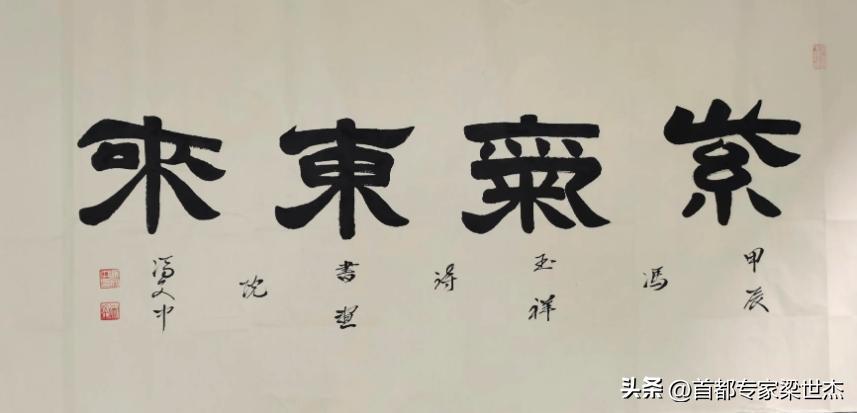 紫氣東來
甲辰
馮
玉祥
诗
書畫
院
冯文中
头条 @首都专家梁世杰